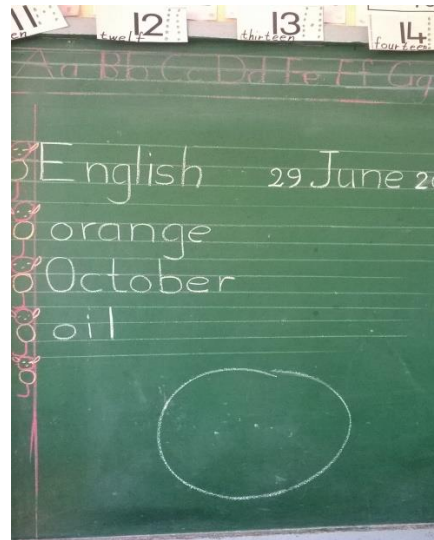 11 12 13 14
en twelf thirteen fourteen
Aa Bb Cc Dd Ee Ff Gg
English 29 June 20
orange
October
oil